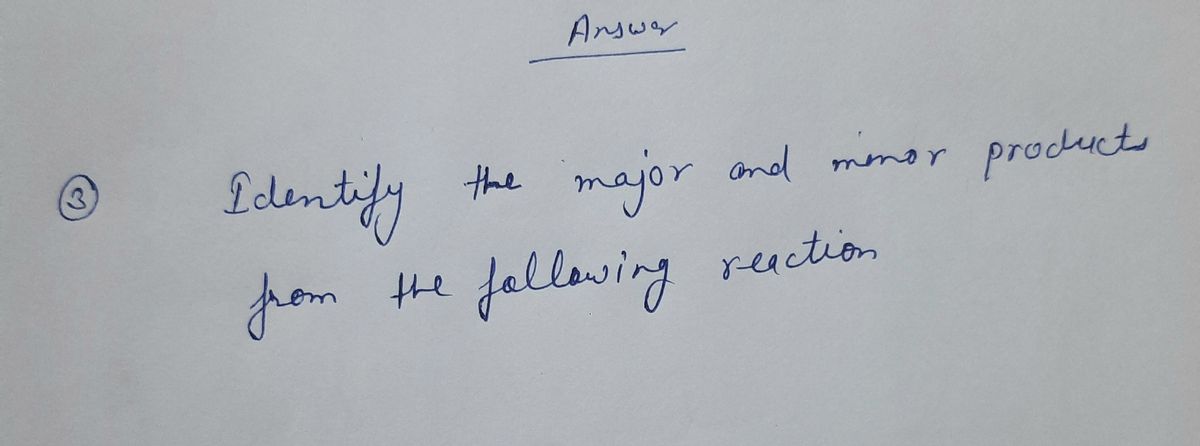 Answer
③ Identify the major and minor products
from the following reaction